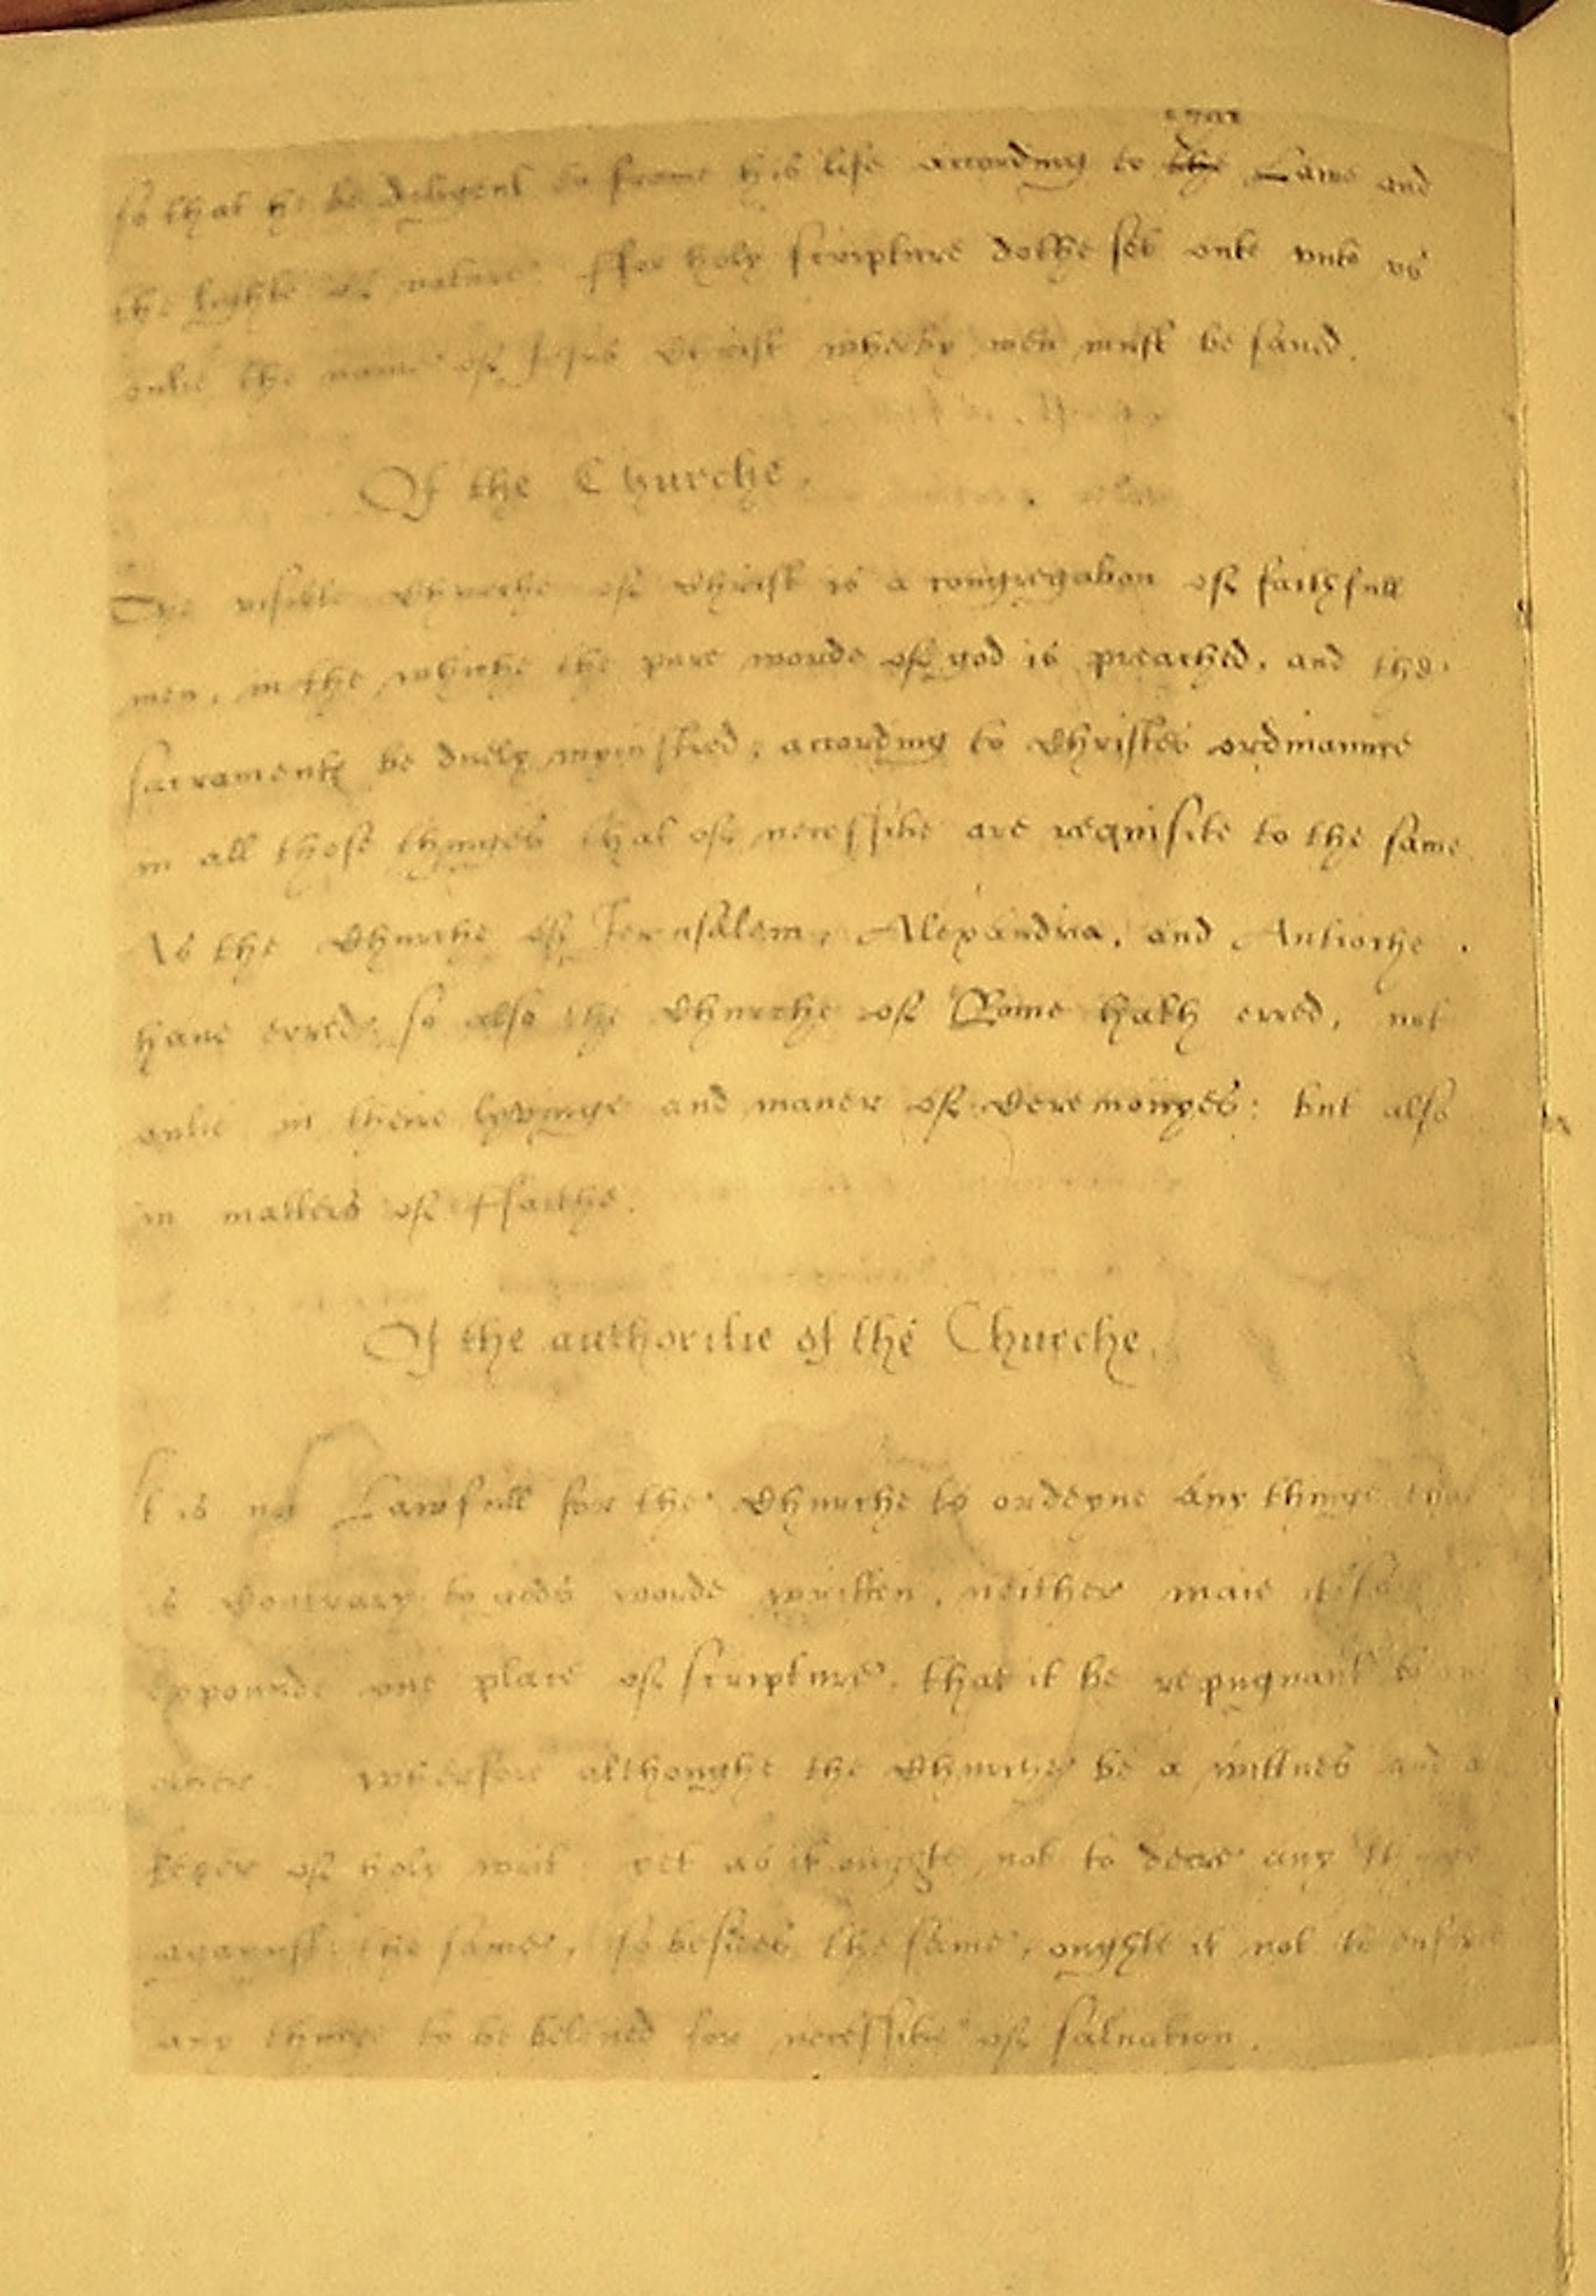 that
so that he be diligent to frame his life according to the Lawe and
the lighte of nature. ffor holy scripture dothe set oute unto us
onlie the name of Jesus Christ wherby men must be saved.
Of the Churche.
The visible Churche of Christ is a congregation of faithfull
men, in the whiche the pure worde of god is preached, and the
sacramentes be duely mynistred, according to Christes ordinaunce
in all those thynges that of necessitie are requisite to the same
As the Churche of Jerusalem, Alexandria, and Antioche .
haue erred: so also the Churche of Rome hath erred, not
onlie in theire lyvinge and maner of Ceremonyes: but also
in matters of ffaithe.
Of the authoritie of the Churche.
It is not Lawfull for the Churche to ordeyne any thinge that
is Contrary to gods worde written, neither maie it so
expounde one place of scripture, that it be repugnant to
other wherfore althoughe the Churche be a wittnes and a
keper of holy writ yet as it oughte not to decre any thinge
against the same, so besides the same, oughte it not to enforce
any thinge to be beleued for necessitie of saluation.